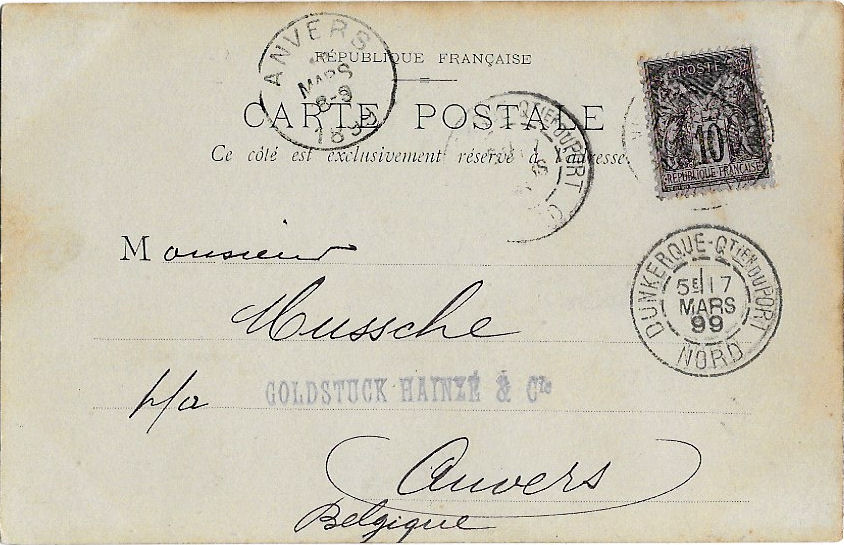 ANVERS
MARS
8-9
RÉPUBLIQUE FRANÇAISE
CARTE POSTALE
Ce côté est exclusivement réservé à l'adresse
QTIER DU PORT
POSTES
10
RÉPUBLIQUE FRANÇAISE
DUNKERQUE-QTIER DU PORT
5E 17
MARS
99
NORD
Monsieur
Mussche
p/a GOLDSTUCK HAINZÉ & Cie
Anvers
Belgique